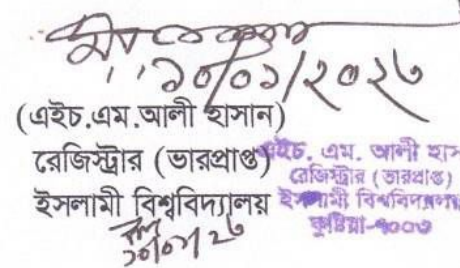 ১০/০১/২০২৩
(এইচ.এম.আলী হাসান)
রেজিস্ট্রার (ভারপ্রাপ্ত)
ইসলামী বিশ্ববিদ্যালয়
এইচ. এম. আলী হাস
রেজিস্ট্রার (ভারপ্রাপ্ত)
ইসলামী বিশ্ববিদ্যালয়
কুষ্টিয়া-৭০০৩
১০/০১/২৩